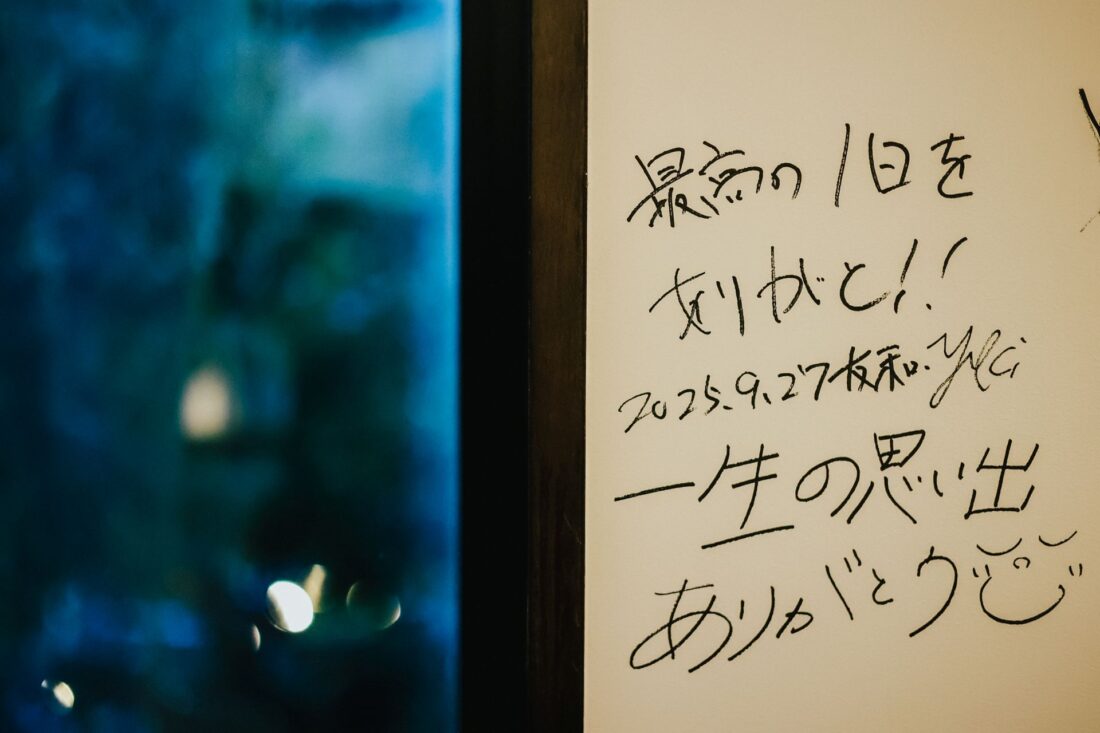 最高の1日を
ありがと!!
2025.9.27 友和.
一生の思い出
ありがとう